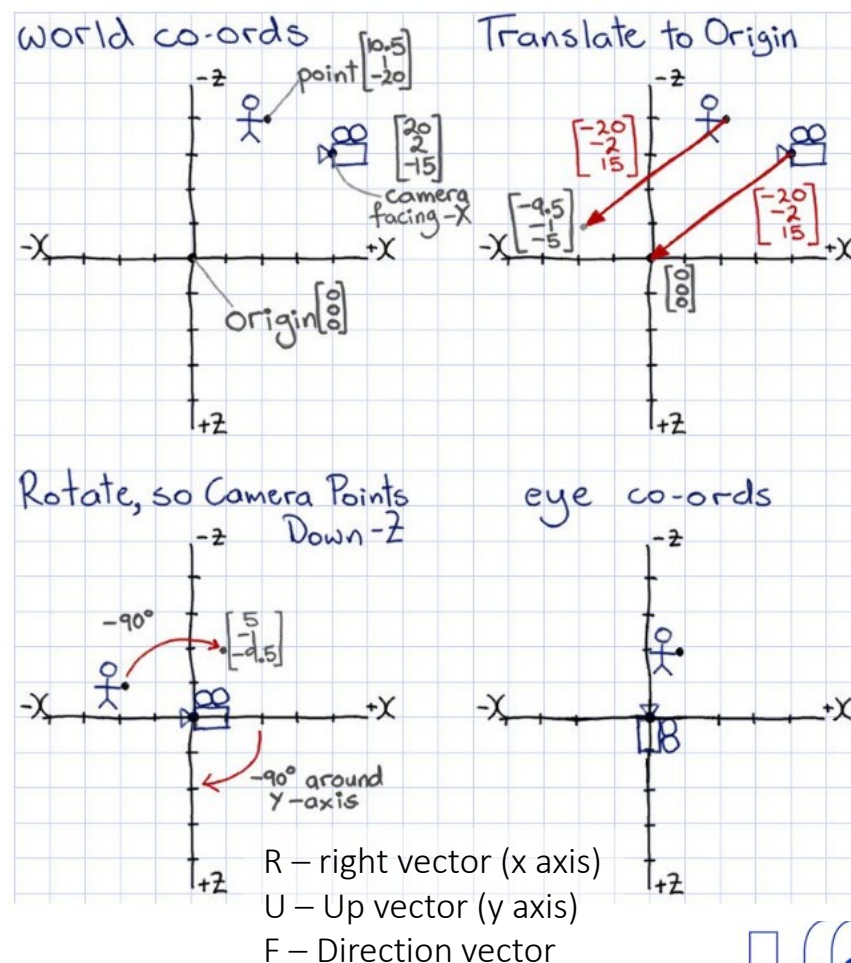 world co-ords
-Z
point [10.5
1
-20]
[20
2
-15]
camera
facing -X
-X
+X
origin [0
0
0]
+Z
Translate to Origin
-Z
[-20
-2
15]
[-9.5
-1
-5]
[-20
-2
15]
-X
+X
[0
0
0]
+Z
Rotate, so Camera Points
Down -Z
-Z
-90°
[5
-1
-9.5]
-X
+X
-90° around
Y-axis
+Z
eye co-ords
-Z
-X
+X
+Z
R – right vector (x axis)
U – Up vector (y axis)
F – Direction vector